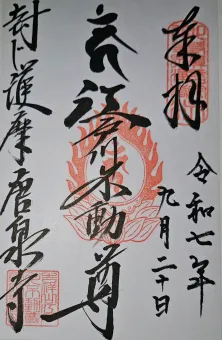 奉拝
令和七年
九月二十日
不動尊
封じ護摩唐泉寺